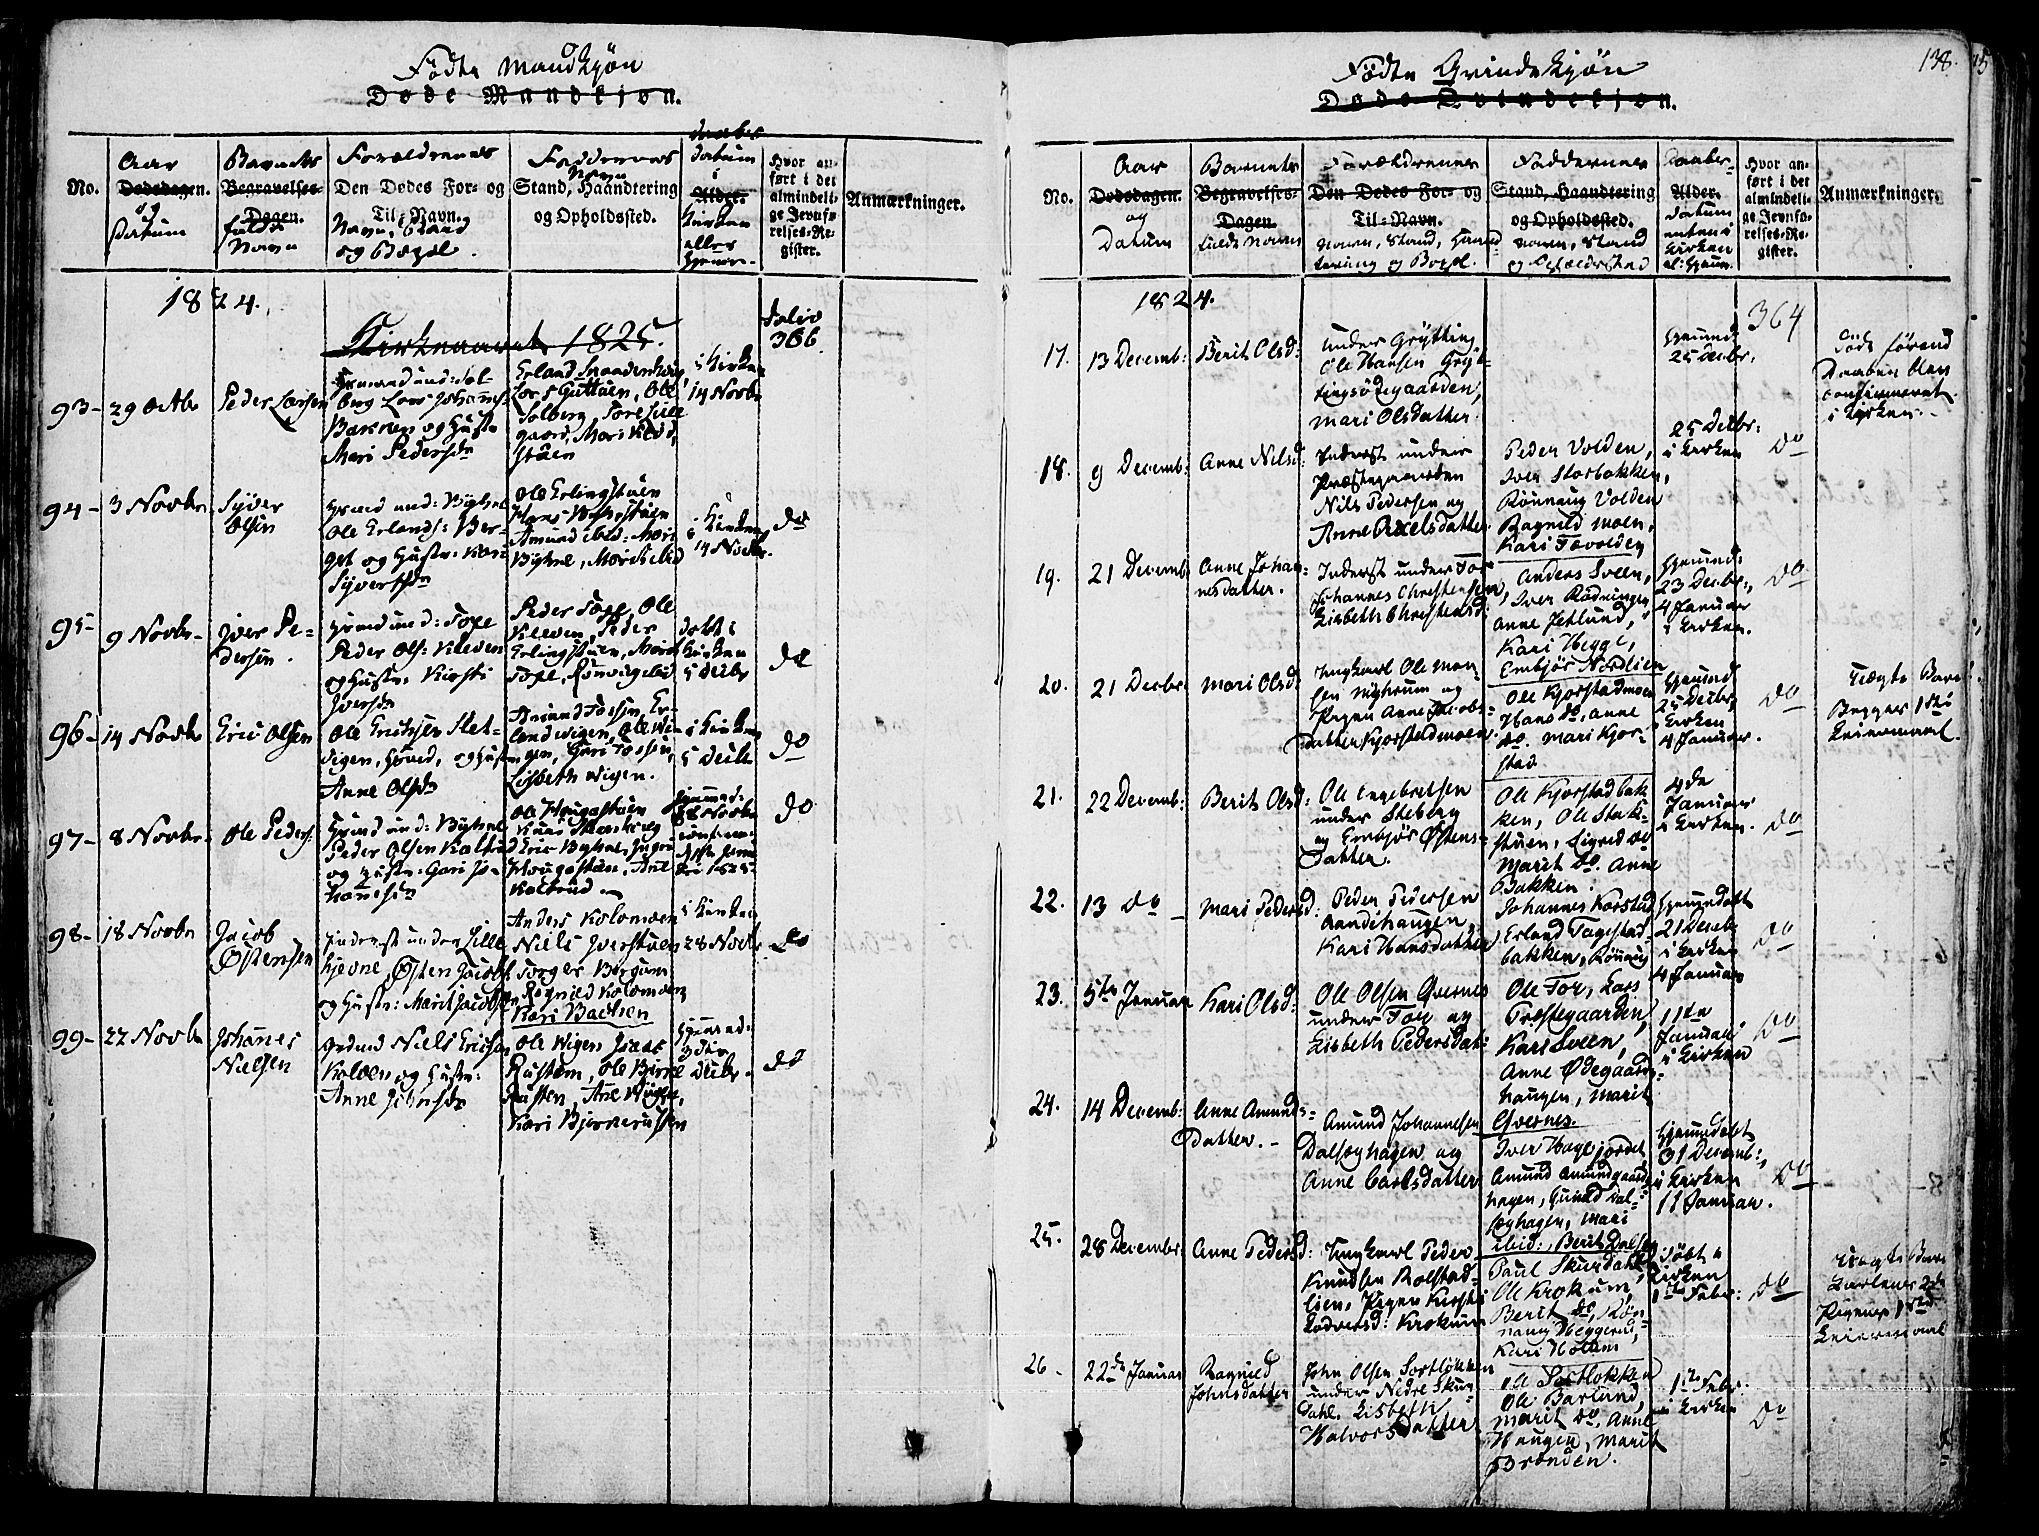 Fødte Mandkjøn
Døde Mandkjøn.
No.
Aar
Dødsdagen.
og
Datum
Barnets
Begravelses-
Dagen.
fulde
Navn
Forældrenes
Den Dødes For- og
Til-Navn.
Navn, Stand
og Bopæl.
Faddernes
Navn
Stand, Haandtering
og Opholdssted.
Daabs
datum
i
Alder.
Kirken
eller
Hjemme
Hvor an-
ført i det
almindeli-
ge Jevnfø-
relses-Re-
gister.
Anmærkninger.
1824.
Kirkeaaret 1825.
Folio
366
93-
29 Octbr
Peder Larsen
Lars Johans
Bakken og Hustr
Mari Pedersdr
Lars Guttuen, Ole
Solberg, Tore Lille
gaard, Mari
stuen
i Kirken
14 Novbr
94-
3 Novbr
Syver
Olsen
Ole Erlands: Ber-
get og Hustr: Kari
Syversdr
Ole Erlingstuen
Hans
Amund ibid: Mari
i Kirken
14 Novbr.
do
95-
9 Novbr-
Iver Pe-
dersen.
Peder Ols: Kleven
og Hustr: Kirsti
Iversdr
Peder Toxe, Ole
Kleven, Peder
Erlingstuen, Marit
Toxe, Rønnaug ibid
døbt i
Kirken
5 Decbr
do
96-
14 Novbr
Eric Olsen
Ole Erichsen Slet-
vigen, og Hustr
Anne Olsdr
Amund Fossen, Er-
land Wigen, Ole Wi-
gen, Gari Fossen,
Lisbeth Wigen.
i Kirken
5 Decbr
do
97-
8 Novbr-
Ole Peders:
Peder Olsen Kalstud
og Hustr: Gari Jo-
hannesdr
Ole Hougastuen
Eric Byhne, Ingri
Hougastuen, Ane
Kalstud
do
98-
18 Novbr
Jacob
Østensen
Inderst under Lille
hjevne, Østen Jacobs:
og Hustr: Marit Jacobsdr
Anders Kolomoen
Niels Iverstuen
Torger Bergum
Ragnild Kolomoen
Kari Bakken
i Kirken
28 Novbr
do
99-
22 Novbr
Johanes
Nielsen
Niels Ericsen
Kolden og Hustr:
Anne Johnsdr
Ole Wigen, Isaac
Rusten, Ole Bjørne
Rusten, Ane Wigen,
Kari Bjørnerusten
Hjemmed:
3die
Decbr-
do
138.
Fødte Qvindekjøn
Døde Qvindekjøn.
No.
Aar
Dødsdagen.
og
Datum
Barnets
Begravelses-
Dagen.
fulde Navn
Forældrenes
Den Dødes For- og
Til-Navn.
Navn, Stand, Haand
tering og Bopæl.
Faddernes
Stand, Haandtering
og Opholdssted.
Navn, Stand
og Opholdssted
Daabs-
Alder.
datum
enten i
Kirken
el: Hjem.
Hvor an-
ført i det
almindeli-
ge Jevnfø-
relses-Re-
gister.
Anmærkninger.
1824.
364
17.
13 Decemb:
Berit Olsd:
under Grytting
Ole Hansen Gryt-
tingsødegaarden,
Mari Olsdatter.
Hjemmed
25 Decbr.
Døde førend
Daaben blev
confirmeret
i Kirken.-
18.
9 Decemb:
Anne Nilsd:
Inderst under
Præstegaarden
Nils Pedersen og
Anne Paulsdatter
Peder Volden,
Iver Storbakken,
Rønnaug Volden
Ragnild Moen,
Kari Tøvolden
25 Decbr:
i Kirken
do
19.
21 Decemb:
Anne Johan-
nesdatter.
Inderst under For
Johannes Christensen,
Lisbeth Christensd:
Anders Sveen,
Iver Rødningen
Anne Jetlund,
Kari Hegge,
Embjør Nordlien
Hjemmed:
23 Decbr:,
4 Januar
i Kirken.
do
20.
21 Decbr:
Mari Olsd:
Ungkarl Ole Han-
sen Nyhuum og
Pigen Anne Jacobs-
datter Kjorstadmoen
Ole Kjorstadmoen
Hans do, Anne
do. Mari Kjor-
stad
Hjemmed
25 Decbr,
Kirken
4 Januar.
do
Uægte Barn
Begges 1ste
Leiermaal.
21.
22 Decemb:
Berit Olsd:
Ole Engebretsen
under Steberg
og Embjør Østens-
datter.
Ole Kjorstadbak
ken, Ole Stak-
stuen, Sigred do
Marit do. Anne
Bakken.
4de
Januar
i Kirken.
do
22.
13 do
Mari Pedersd:
Peder Pedersen
Randihaugen,
Kari Hansdatter
Johannes Korstad
Erland Tagestad-
bakken, Rønnaug
Hjemmedøbt
21 Decb:
i Kirken
4 Januar
do
23.
5te Januar
Kari Olsd:
Ole Olsen Qvernes
under Toxe og
Lisbeth Pedersdat:
Ole For, Lars
Præstegaarden,
Kari Sveen,
Anne Ødegaards-
haugen, Marit
Qvernes.
11te
Januar
i Kirken
do
24.
14 Decemb:
Anne Amunds-
datter.-
Amund Johannesen
Dalseghagen og
Anne Carlsdatter
Iver Hagejordet
Amund Amundgaards
hagen, Gunild Dal-
seghagen, Mari
ibid:, Berit Dalseg
Hjemmedøbt
31 Decemb:,
i Kirken
11 Januar.
do
25.
28 December:
Anne Pedersd:
Ungkarl Peder
Knudsen Rolstad-
lien, Pigen Kirsti
Sødversd: Krokum
Paul Skurdahl,
Ole Krokum,
Berit do, Røn-
naug Heggerud,
Kari Hollum
Døbt i
Kirken
1ste Febr:
do
Uægte Barn
Karlenes 2det
Pigenes 1ste
Leiermaal
26-
22de Januar
Ragnild
Johnsdatter
John Olsen Sortløkken
under Nedre Skur-
dahl. Lisbeth
Halvorsdatter
Ole Sortløkken
Ole Barlund,
Marit do, Anne
Haugen, Marit
Brænden.
1ste Febr.
i Kirken
do